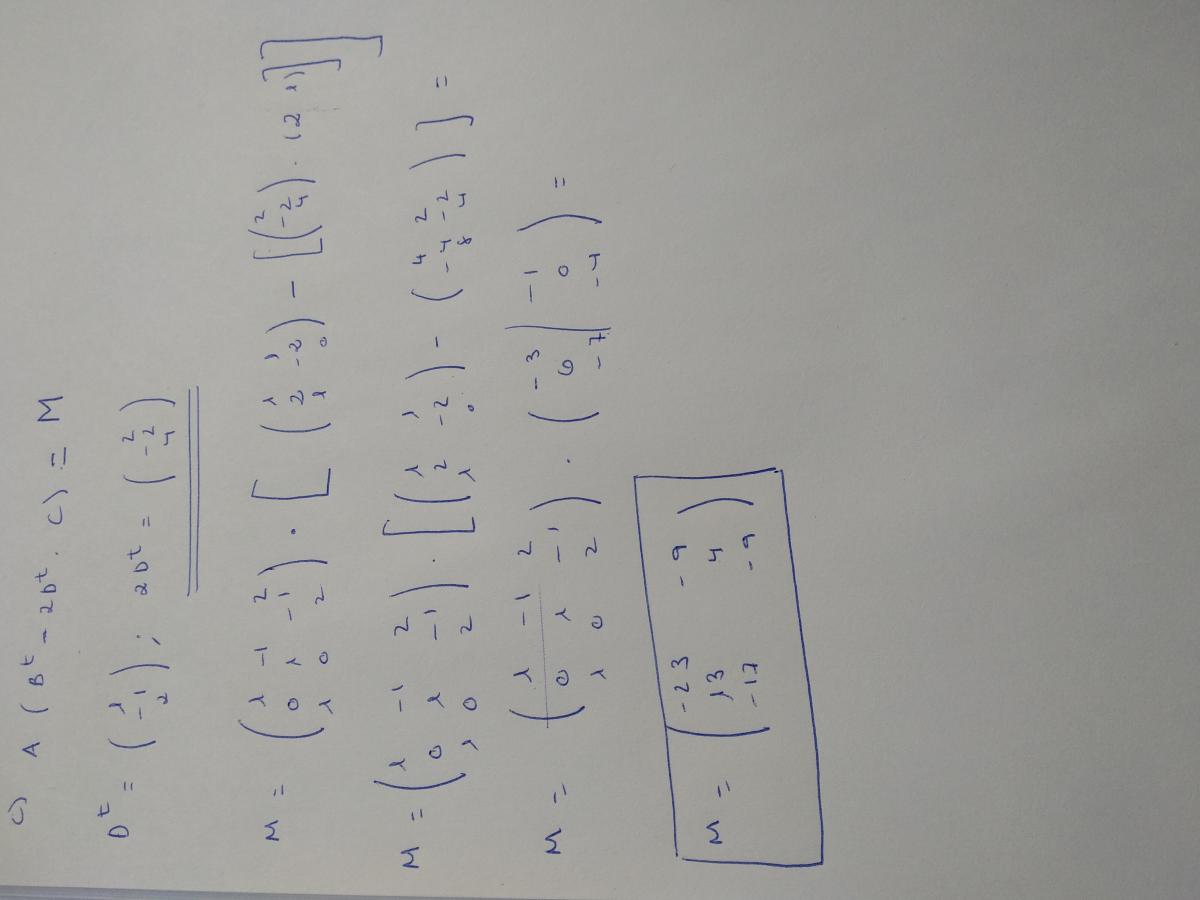 c) A (Bᵗ - 2Dᵗ · C) = M
Dᵗ = (1 ; -1 ; 2) ; 2Dᵗ = (2 ; -2 ; 4)
M = (1 -1 2 ; 0 1 -1 ; 1 0 2) · [(1 1 ; 2 -2 ; 1 0) - [(2 ; -2 ; 4) · (2 1)]]
M = (1 -1 2 ; 0 1 -1 ; 1 0 2) · [(1 1 ; 2 -2 ; 1 0) - (4 2 ; -4 -2 ; 8 4)] =
M = (1 -1 2 ; 0 1 -1 ; 1 0 2) · (-3 | -1 ; 6 | 0 ; -7 | -4) =
M = (-23 -9 ; 13 4 ; -17 -9)